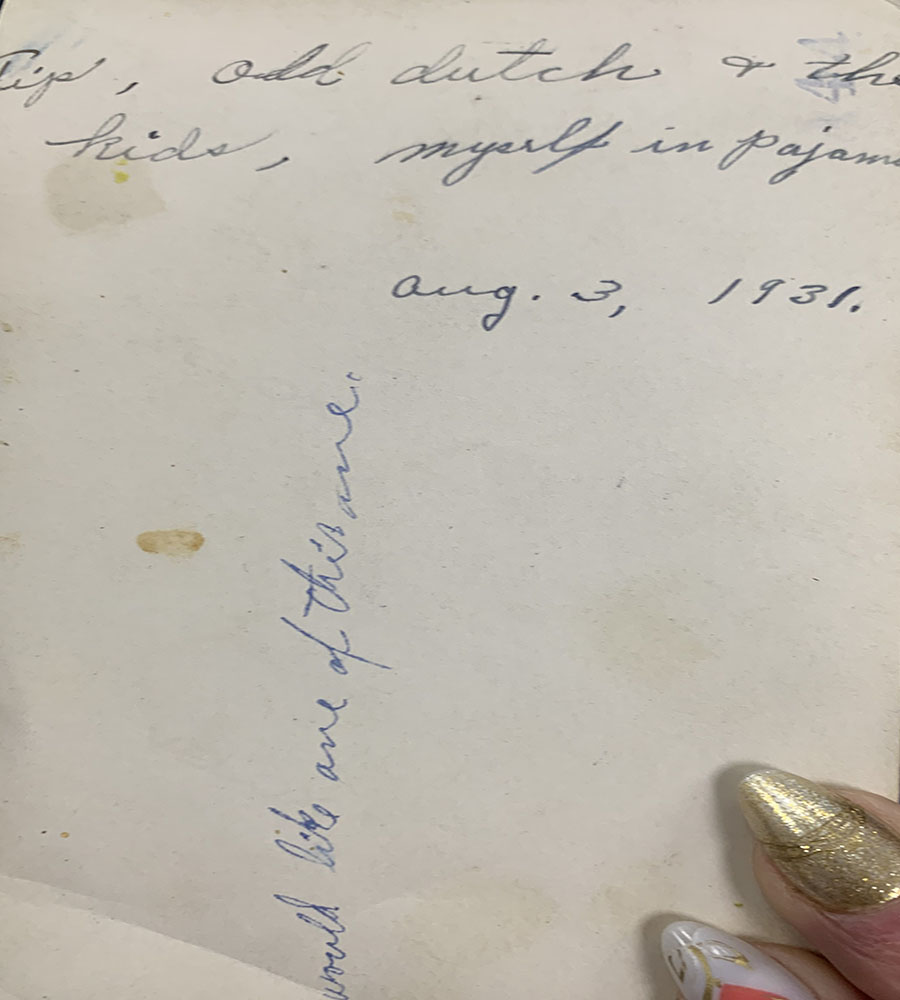 Rip, odd dutch & the
kids, myself in pajama
Aug. 3, 1931.
would like one of this one.